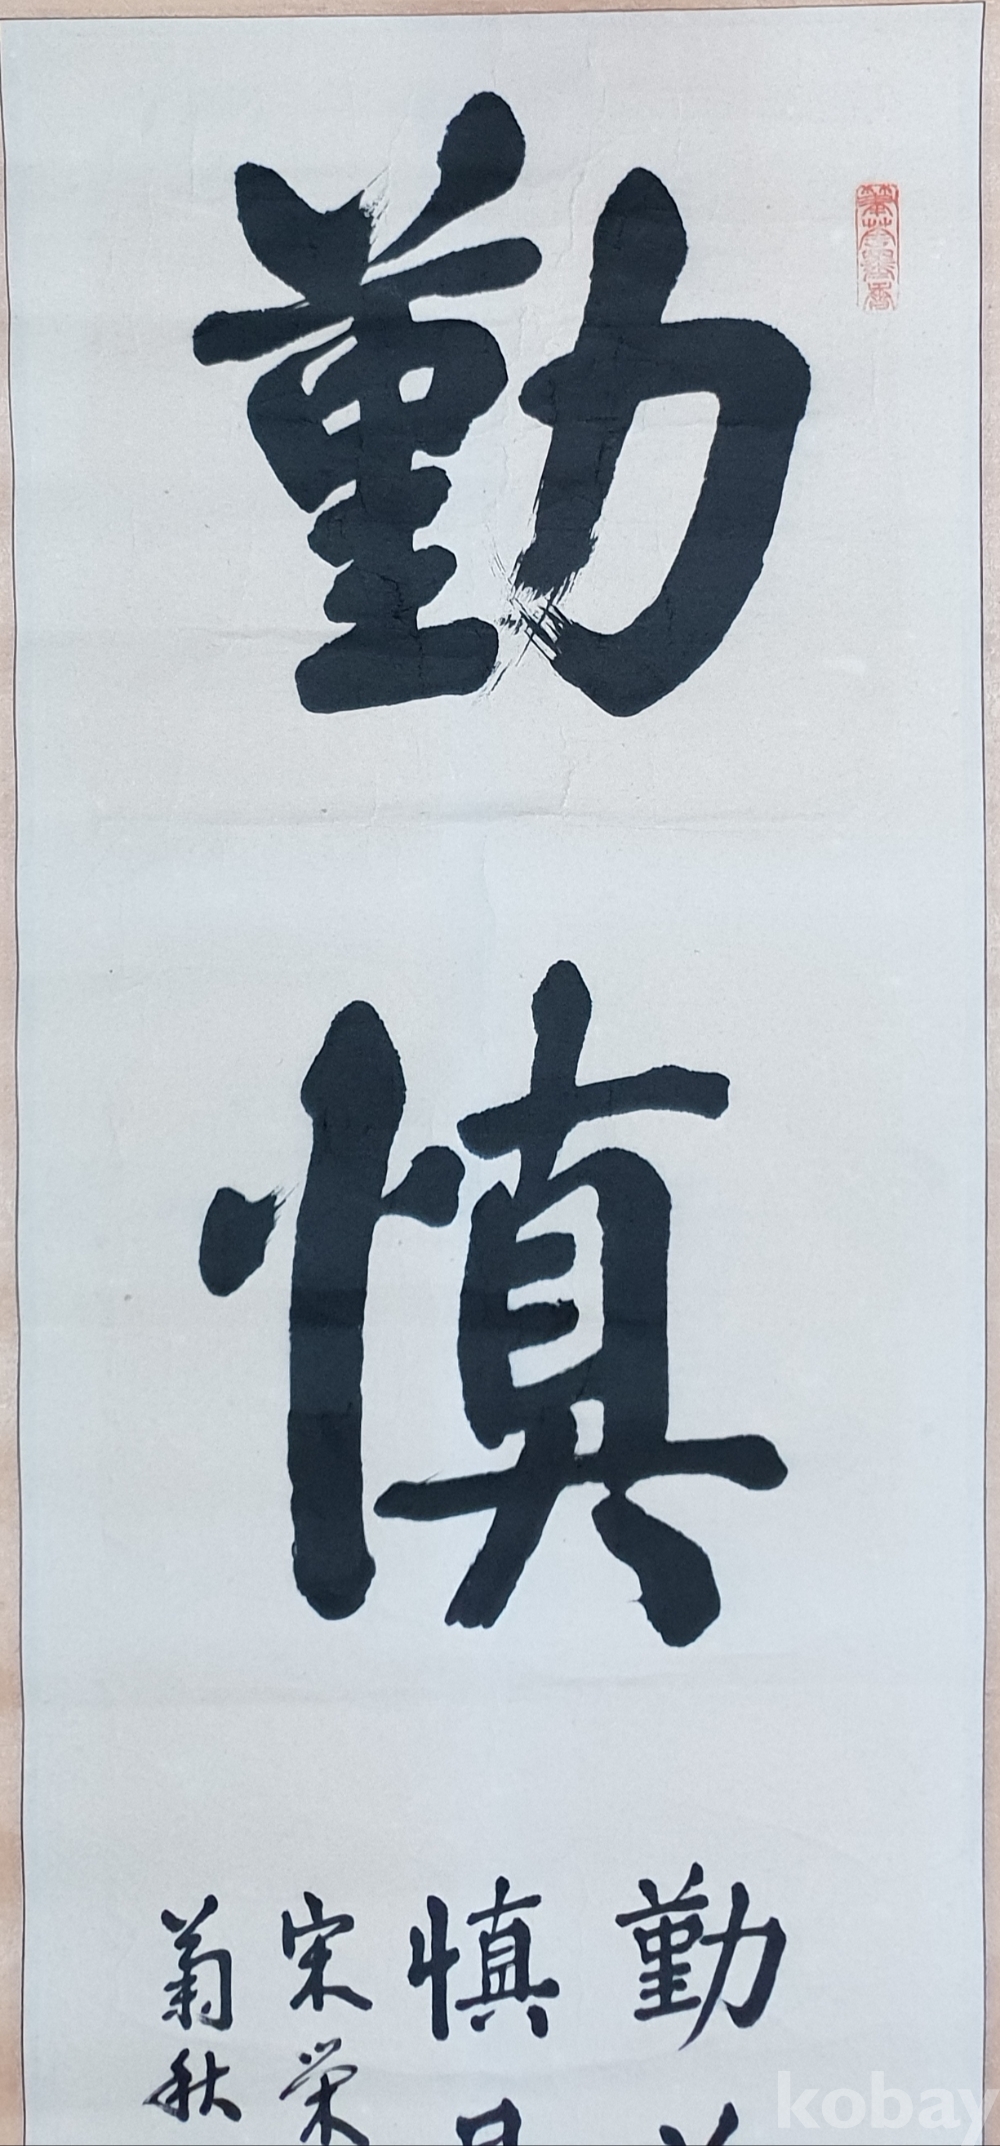 勤
慎
勤
慎
宋榮
菊秋
kobay